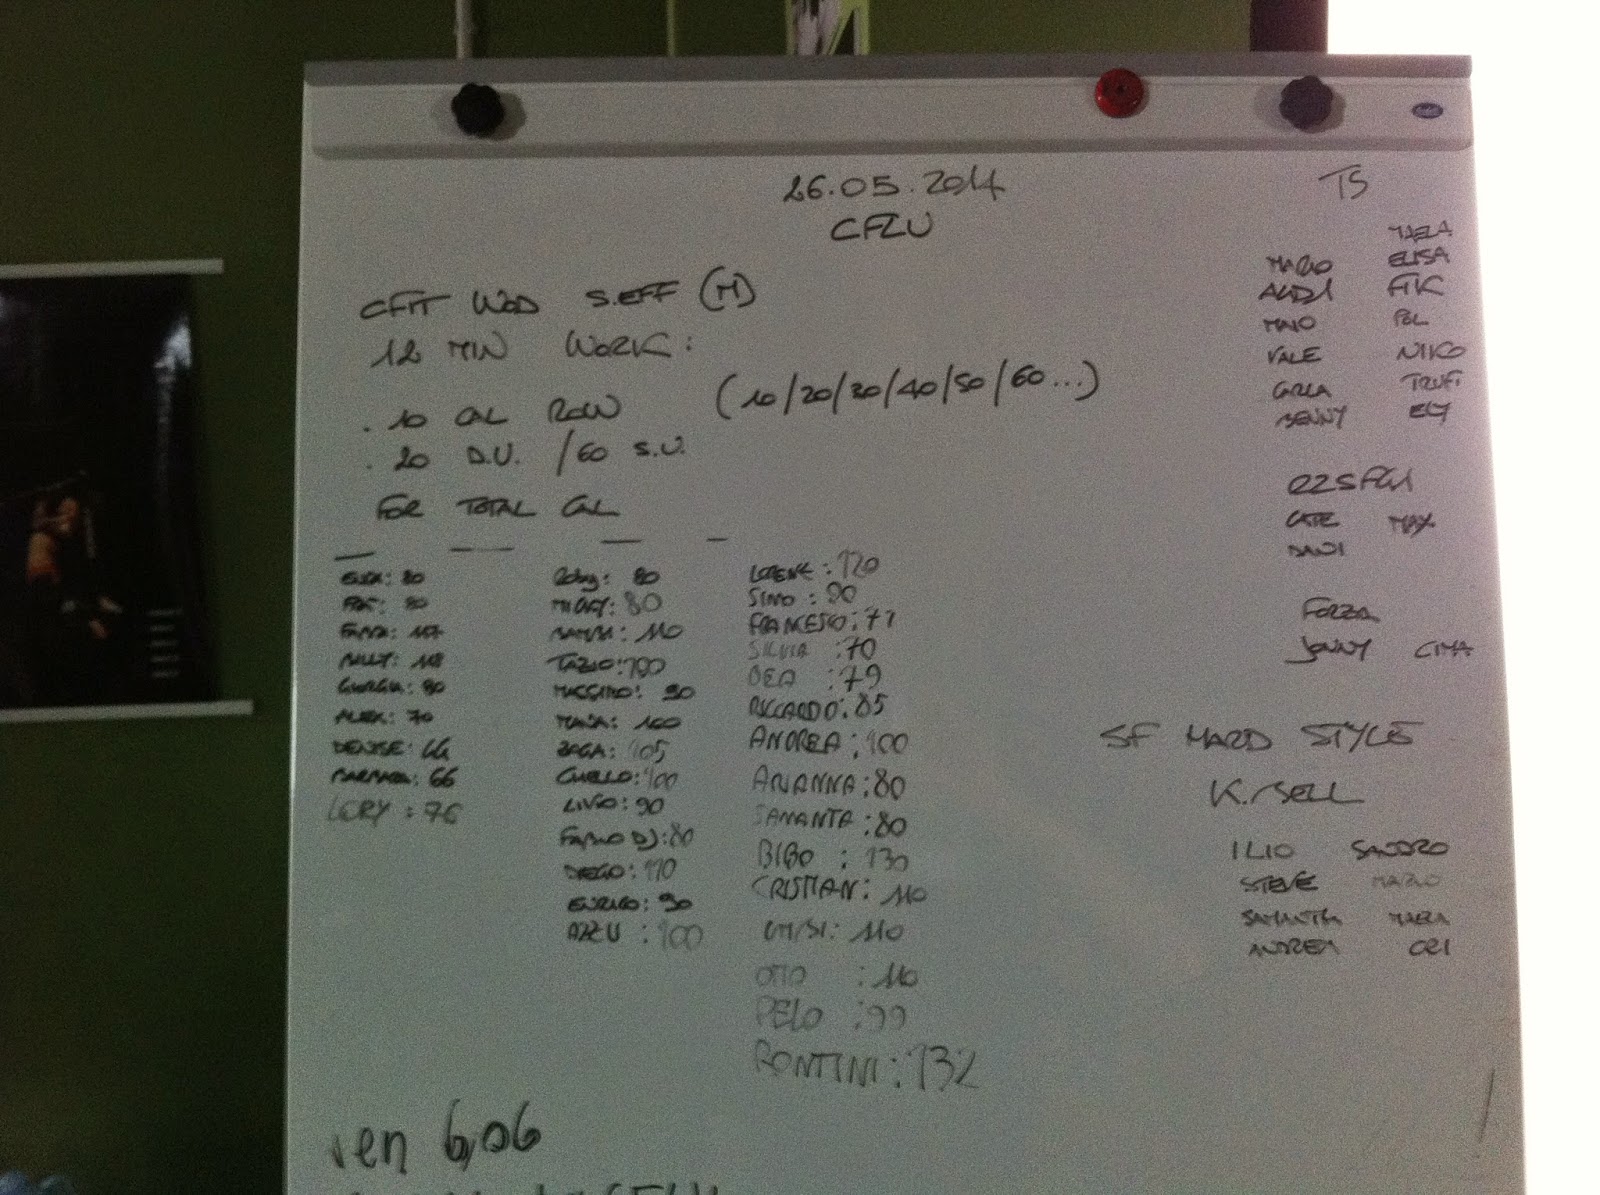 26.05.2014
CFZU
CFIT WOD S.EFF (M)
12 MIN WORK:
. 10 CAL ROW (10/20/30/40/50/60...)
. 20 D.U. /60 S.U.
FOR TOTAL CAL
: 80
: 80
: 107
BILLY:
GIORGIA: 80
ALEX: 70
DENISE: 64
BARBARA: 66
LERY: 76
Roby: 80
MICKY: 80
: 110
TAZIO: 100
MASSIMO: 90
: 100
ZAGA: 105
: 100
LIVIO: 90
FABIO DJ: 80
DIEGO: 110
ENRICO: 90
AZZU: 100
: 120
SIMO: 90
FRANCESCO: 77
SILVIA: 70
DEA: 79
RICCARDO: 85
ANDREA: 100
ARIANNA: 80
SAMANTA: 80
BIBO: 130
CRISTIAN: 110
: 110
OTTO: 110
PELO: 99
RONTINI: 132
ven 6,06
TS
MAELA
MARIO ELISA
FIK
MAIO POL
VALE NIKO
CARLA TRUFI
BENNY ELY
CATE MAX
DANI
FORZA
JENNY CIMA
SF HARD STYLE
K.BELL
ILIO SANDRO
STEVE MARIO
SAMANTA MAELA
ANDREA CRI